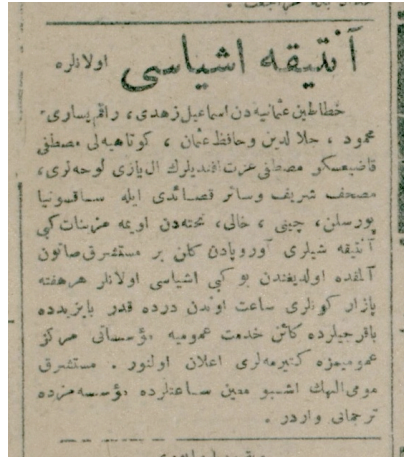 آنتیقه اشیاسی اولانلره
خطاطین عثمانیه‌دن اسماعیل زهدی، راقم یساری
محمود ، جلال‌الدین وحافظ عثمان ، کوتاهیه‌لی مصطفی
قاضیعسکر مصطفی عزت افندیلرك ال یازی لوحه‌لری،
مصحف شریف وسائر قصائدی ایله ساقسونیا
پورسلن، چینی ، خالی، تخته‌دن اویمه مزینات کبی
آنتیقه شیلری آوروپادن کلن بر مستشرق صاتون
آلمقده اولدیغندن بو کبی اشیاسی اولانلر هر هفته
پازار کونلری ساعت اوندن درده قدر بایزیدده
باقرجیلرده کائن خدمت عمومیه مؤسساتی مرکز
عمومیمزه کتیرمه‌لری اعلان اولنور . مستشرق
مومی‌الیهك اشبو معین ساعتلرده مؤسسه‌مزده
ترجمانی واردر .